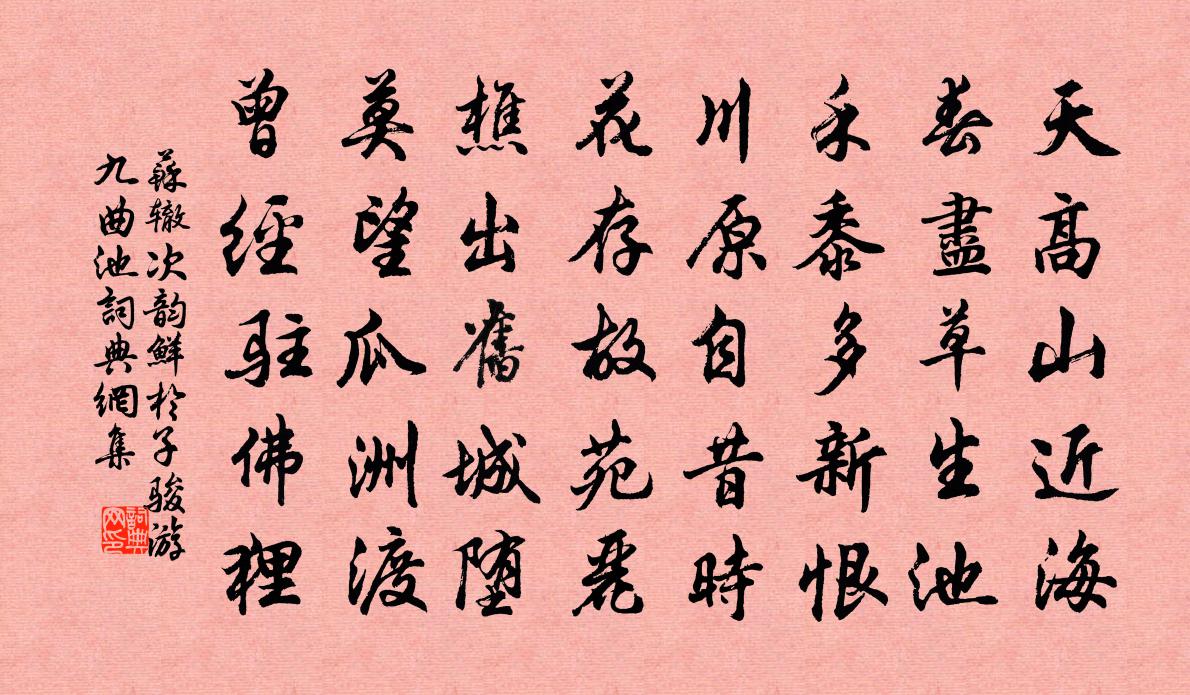 天高山近海
春盡草生池
禾黍多新恨
川原自昔時
花存故苑麗
樵出舊城堕
莫望瓜洲渡
曾經駐佛狸
蘇辙次韵鮮於子駿游
九曲池詞典網集
詞典网印